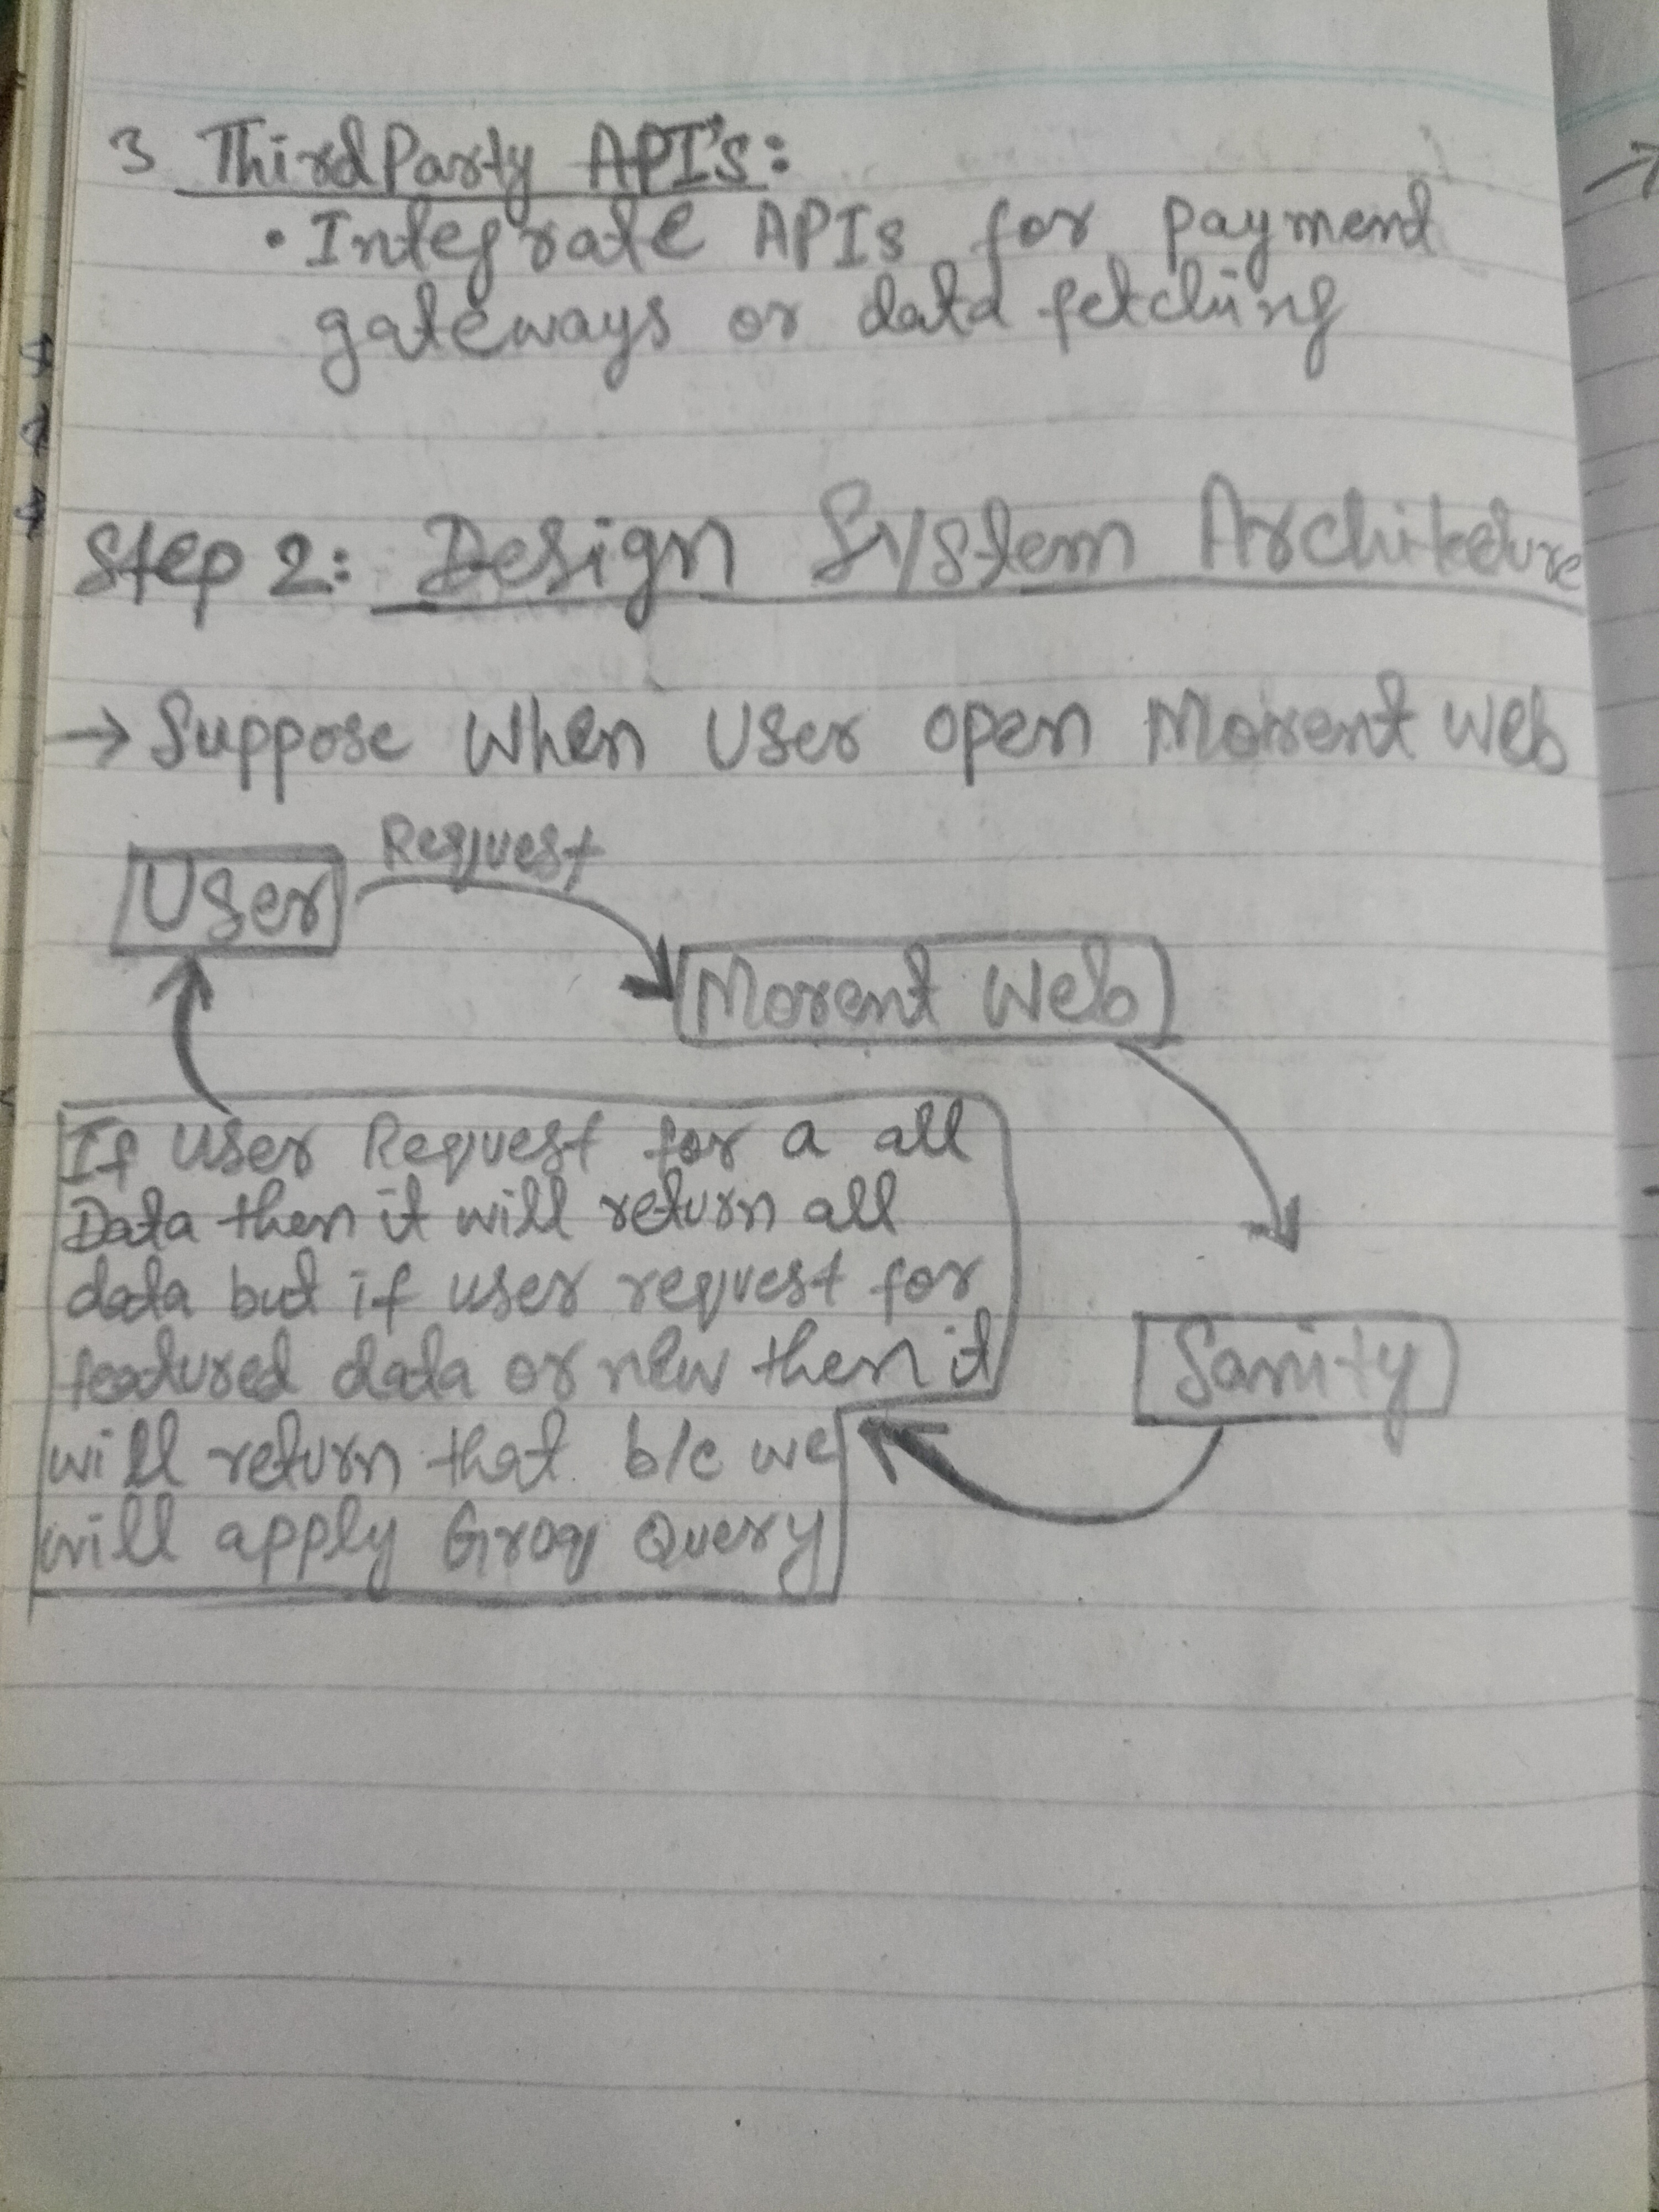 3 Third Party API's:
• Integrate APIs for payment
gateways or data fetching
Step 2: Design System Architecture
→ Suppose When User open Morent Web
Request
User
Morent Web
If User Request for a all
Data then it will return all
data but if user request for
featured data or new then it
will return that b/c we
will apply Groq Query
Sanity